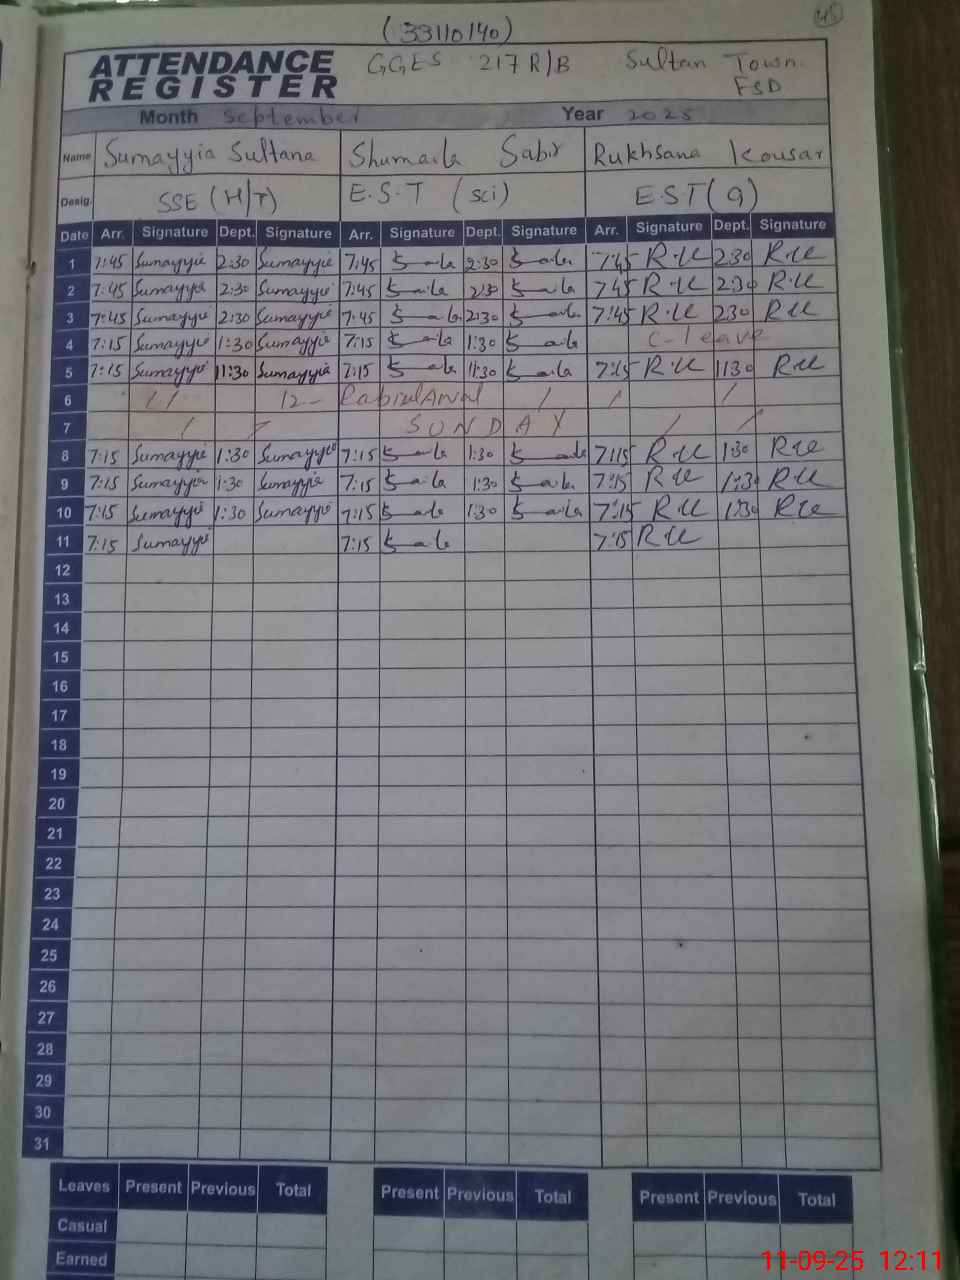 45
(33110140)
ATTENDANCE REGISTER GGES 217 R/B Sultan Town FSD
Month September Year 2025
Name Sumayyia Sultana Shumaila Sabir Rukhsana Kousar
Desig. SSE (H/T) E.S.T (sci) E.S.T (G)
Date Arr. Signature Dept. Signature Arr. Signature Dept. Signature Arr. Signature Dept. Signature
1 7:45 Sumayyia 2:30 Sumayyia 7:45 2:30 7:45 R.K 2:30 R.K
2 7:45 Sumayyia 2:30 Sumayyia 7:45 2:30 7:45 R.K 2:30 R.K
3 7:45 Sumayyia 2:30 Sumayyia 7:45 2:30 7:45 R.K 2:30 R.K
4 7:15 Sumayyia 1:30 Sumayyia 7:15 1:30 C-leave
5 7:15 Sumayyia 11:30 Sumayyia 7:15 11:30 7:15 R.K 11:30 R.K
6 12- RabiulAwal
7 SUNDAY
8 7:15 Sumayyia 1:30 Sumayyia 7:15 1:30 7:15 R.K 1:30 R.K
9 7:15 Sumayyia 1:30 Sumayyia 7:15 1:30 7:15 R.K 1:30 R.K
10 7:15 Sumayyia 1:30 Sumayyia 7:15 1:30 7:15 R.K 1:30 R.K
11 7:15 Sumayyia 7:15 7:15 R.K
12
13
14
15
16
17
18
19
20
21
22
23
24
25
26
27
28
29
30
31
Leaves Present Previous Total Present Previous Total Present Previous Total
Casual
Earned
11-09-25 12:11